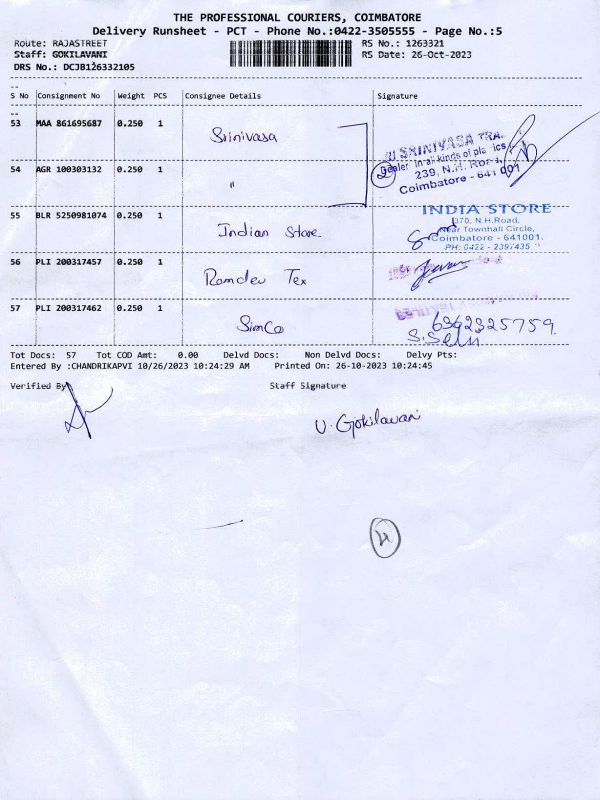 THE PROFESSIONAL COURIERS, COIMBATORE
Delivery Runsheet - PCT - Phone No.:0422-3505555 - Page No.:5
Route: RAJASTREET RS No.: 1263321
Staff: GOKILAVANI RS Date: 26-Oct-2023
DRS No.: DCJB126332105
S No Consignment No Weight PCS Consignee Details Signature
53 MAA 861695687 0.250 1 Srinivasa
SRI SRINIVASA TRA
Dealer in all kinds of plastics
239, N.H. Road,
Coimbatore - 641 001
2
54 AGR 100303132 0.250 1 "
55 BLR 5250981074 0.250 1 Indian Store
INDIA STORE
370, N.H.Road,
Near Townhall Circle,
Coimbatore - 641001.
PH: 0422 - 2397435
56 PLI 200317457 0.250 1 Ramdev Tex
57 PLI 200317462 0.250 1 SimCo
6362325759
Tot Docs: 57 Tot COD Amt: 0.00 Delvd Docs: Non Delvd Docs: Delvy Pts:
Entered By :CHANDRIKAPVI 10/26/2023 10:24:29 AM Printed On: 26-10-2023 10:24:45
Verified By Staff Signature
U. Gokilavani